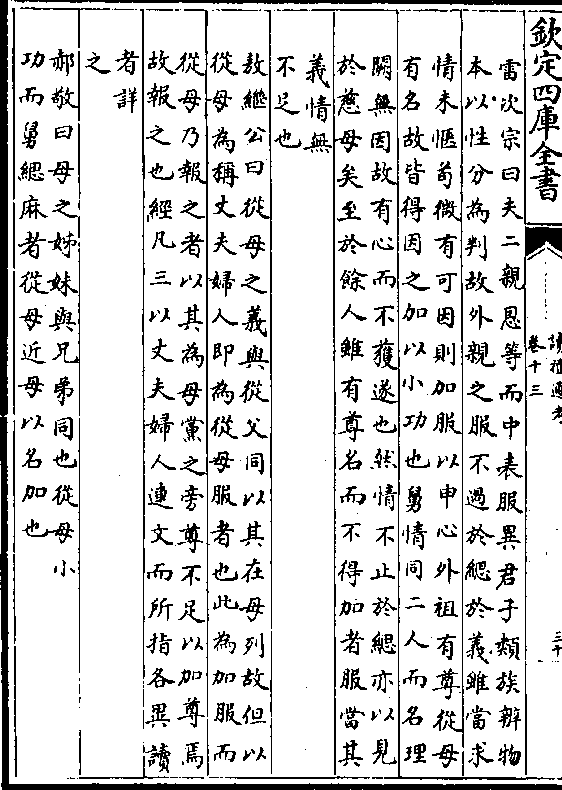 欽定四庫全書
讀禮通考
卷十三
三十
雷次宗曰夫二親恩等而中表服異君子類族辨物
本以性分為判故外親之服不過於緦於義雖當求
情未愜苟微有可因則加服以申心外祖有尊從母
有名故皆得因之加以小功也舅情同二人而名理
闕無因故有心而不獲遂也然情不止於緦亦以見
於慈母矣至於餘人雖有尊名而不得加者服當其
義情無
不足也
敖繼公曰從母之義與從父同以其在母列故但以
從母為稱丈夫婦人即為從母服者也此為加服而
從母乃報之者以其為母黨之旁尊不足以加尊焉
故報之也經凡三以丈夫婦人連文而所指各異讀
者詳
之
郝敬曰母之姊妹與兄弟同也從母小
功而舅緦麻者從母近母以名加也